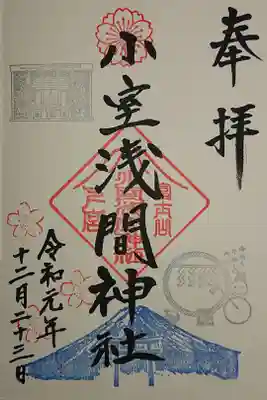 奉拝
小室浅間神社
令和元年
十二月二十三日